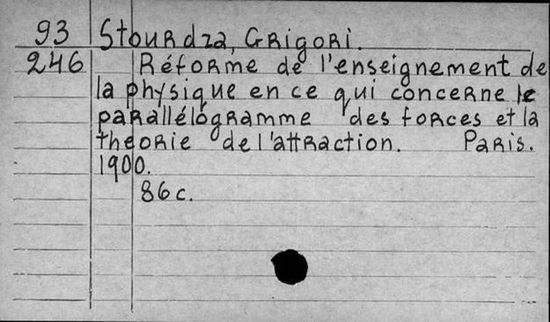 93 Stourdza, Grigori.
246 Réforme de l'enseignement de
la physique en ce qui concerne le
parallélogramme des forces et la
theorie de l'attraction. Paris.
1900.
86 c.